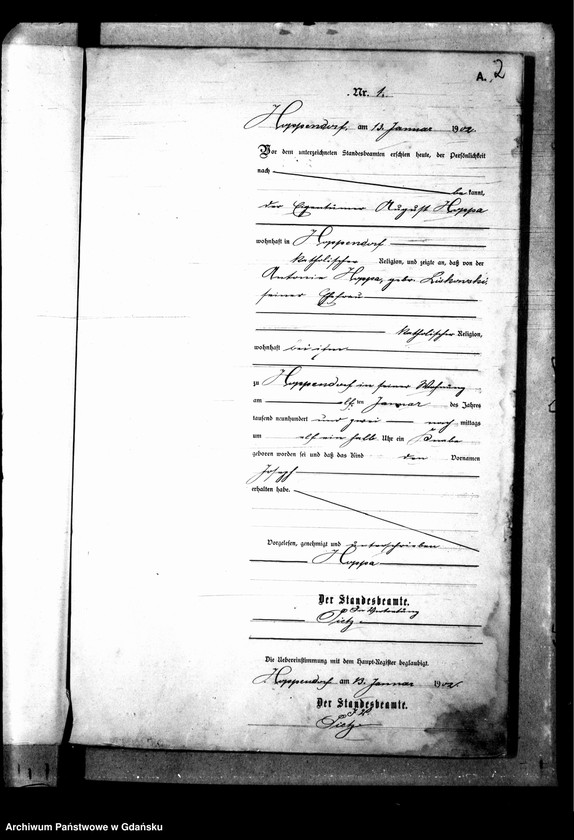 A. 2
Nr. 1.
Hoppendorf, am 13. Januar 1902.
Vor dem unterzeichneten Standesbeamten erschien heute, der Persönlichkeit
nach
be kannt,
der Eigentümer August Hoppa
wohnhaft in Hoppendorf
katholischer Religion, und zeigte an, daß von der
Antonie Hoppa, gebr. Liskowski
seiner Ehefrau
katholischer Religion,
wohnhaft bei ihm
zu Hoppendorf in seiner Wohnung
am elf ten Januar des Jahres
tausend neunhundert und zwei nach mittags
um elf ein halb Uhr ein Knabe
geboren worden sei und daß das Kind den Vornamen
Joseph
erhalten habe.
Vorgelesen, genehmigt und unterschrieben
Hoppa
Der Standesbeamte.
In Vertretung
Tietz
Die Uebereinstimmung mit dem Haupt-Register beglaubigt.
Hoppendorf am 13. Januar 1902.
Der Standesbeamte.
I. V.
Tietz
Archiwum Państwowe w Gdańsku